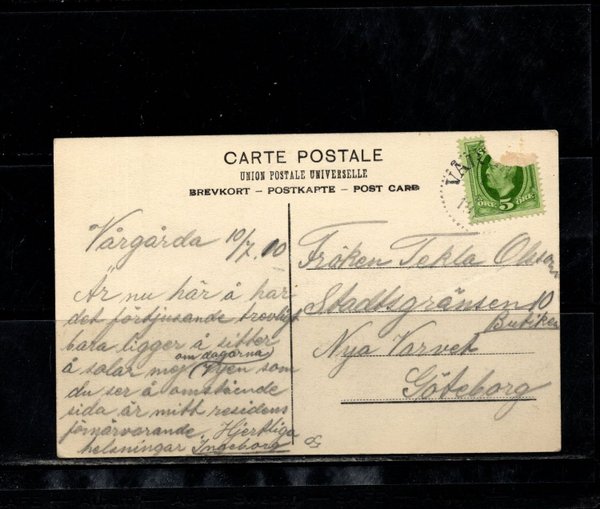 CARTE POSTALE
UNION POSTALE UNIVERSELLE
BREVKORT – POSTKARTE – POST CARD
5 ÖRE ÖRE
Vårgårda 10/7 10
Är nu här å har
det förtjusande trevligt
bara ligger å sitter
å solar mej om dagarna
du ser å omstående
sida är mitt residens
förnärvarande. Hjertliga
helsningar Ingeborg
Fröken Tekla Olsson
Stadtsgränsen 10
Butiken
Nya Varvet
Göteborg